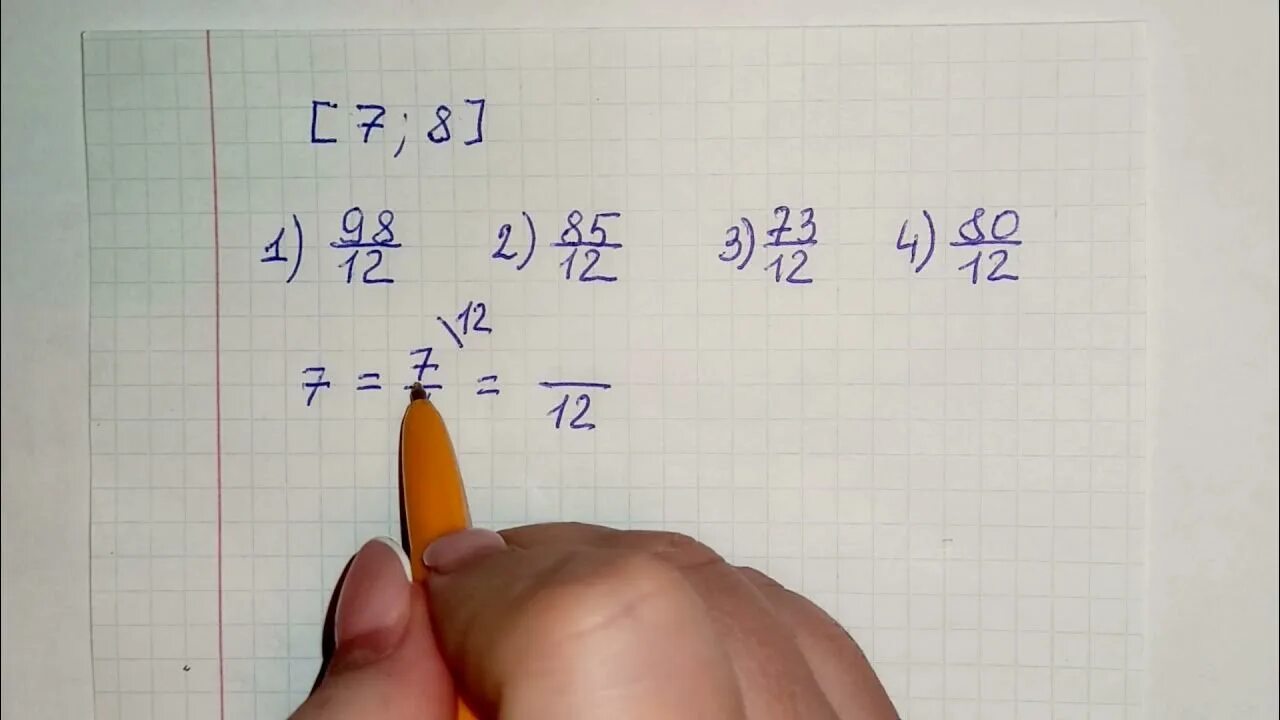 [7; 8]
1) 98/12 2) 85/12 3) 73/12 4) 80/12
7 = 7/ \12 = /12